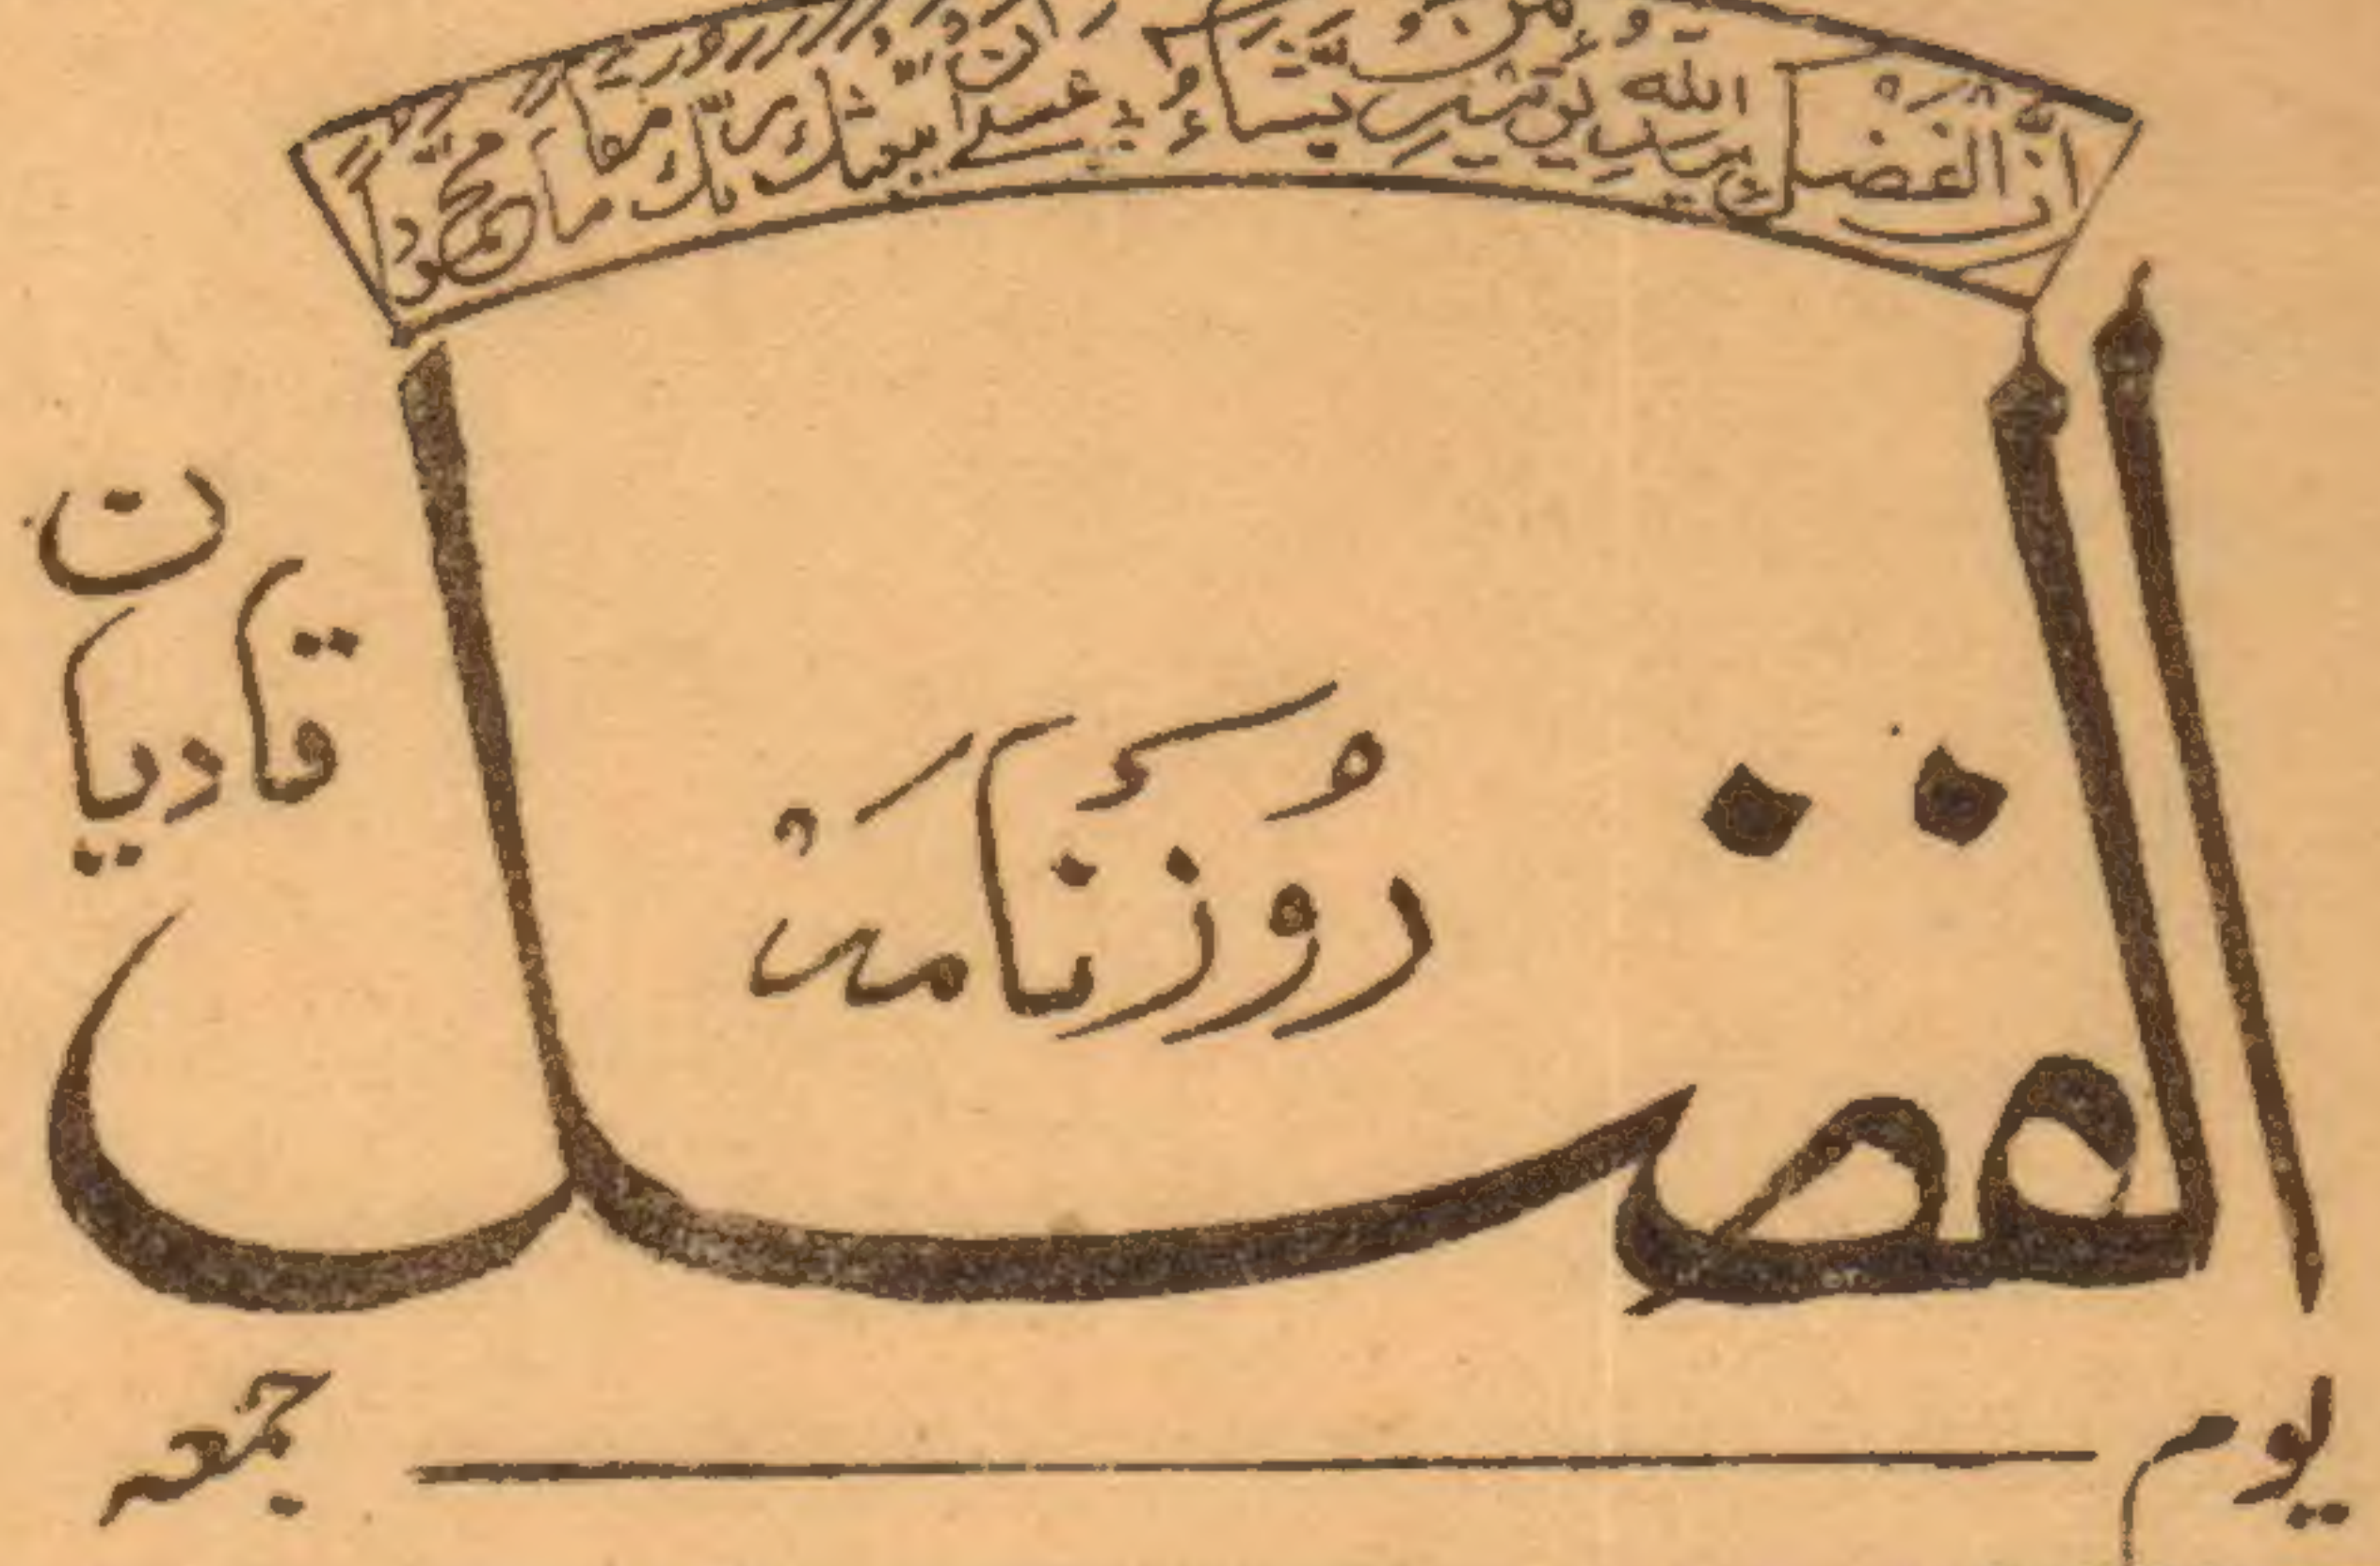 ان الفضل بید اللہ یؤتیہ من یشاء عسےٰ ان یبعثک ربک مقاما محمودا
الفضل
روزنامہ
قادیان
یوم جمعہ